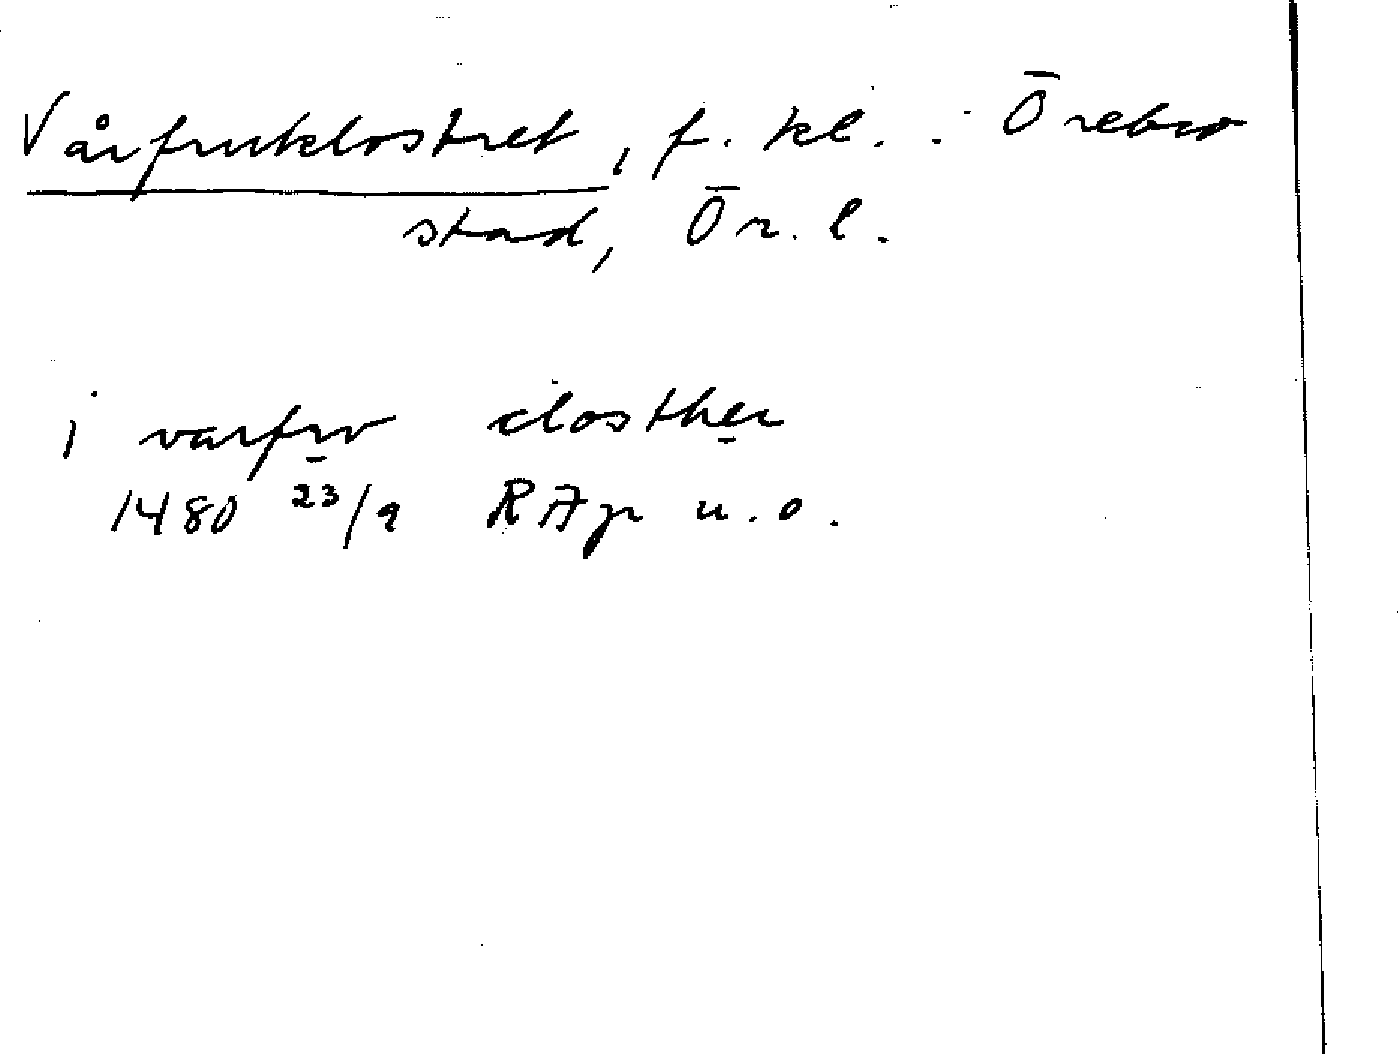 Vårfruklostret, f. kl. i Örebro
stad, Ör. l.
i varfrv closther
1480 23/9 RAp u. o.